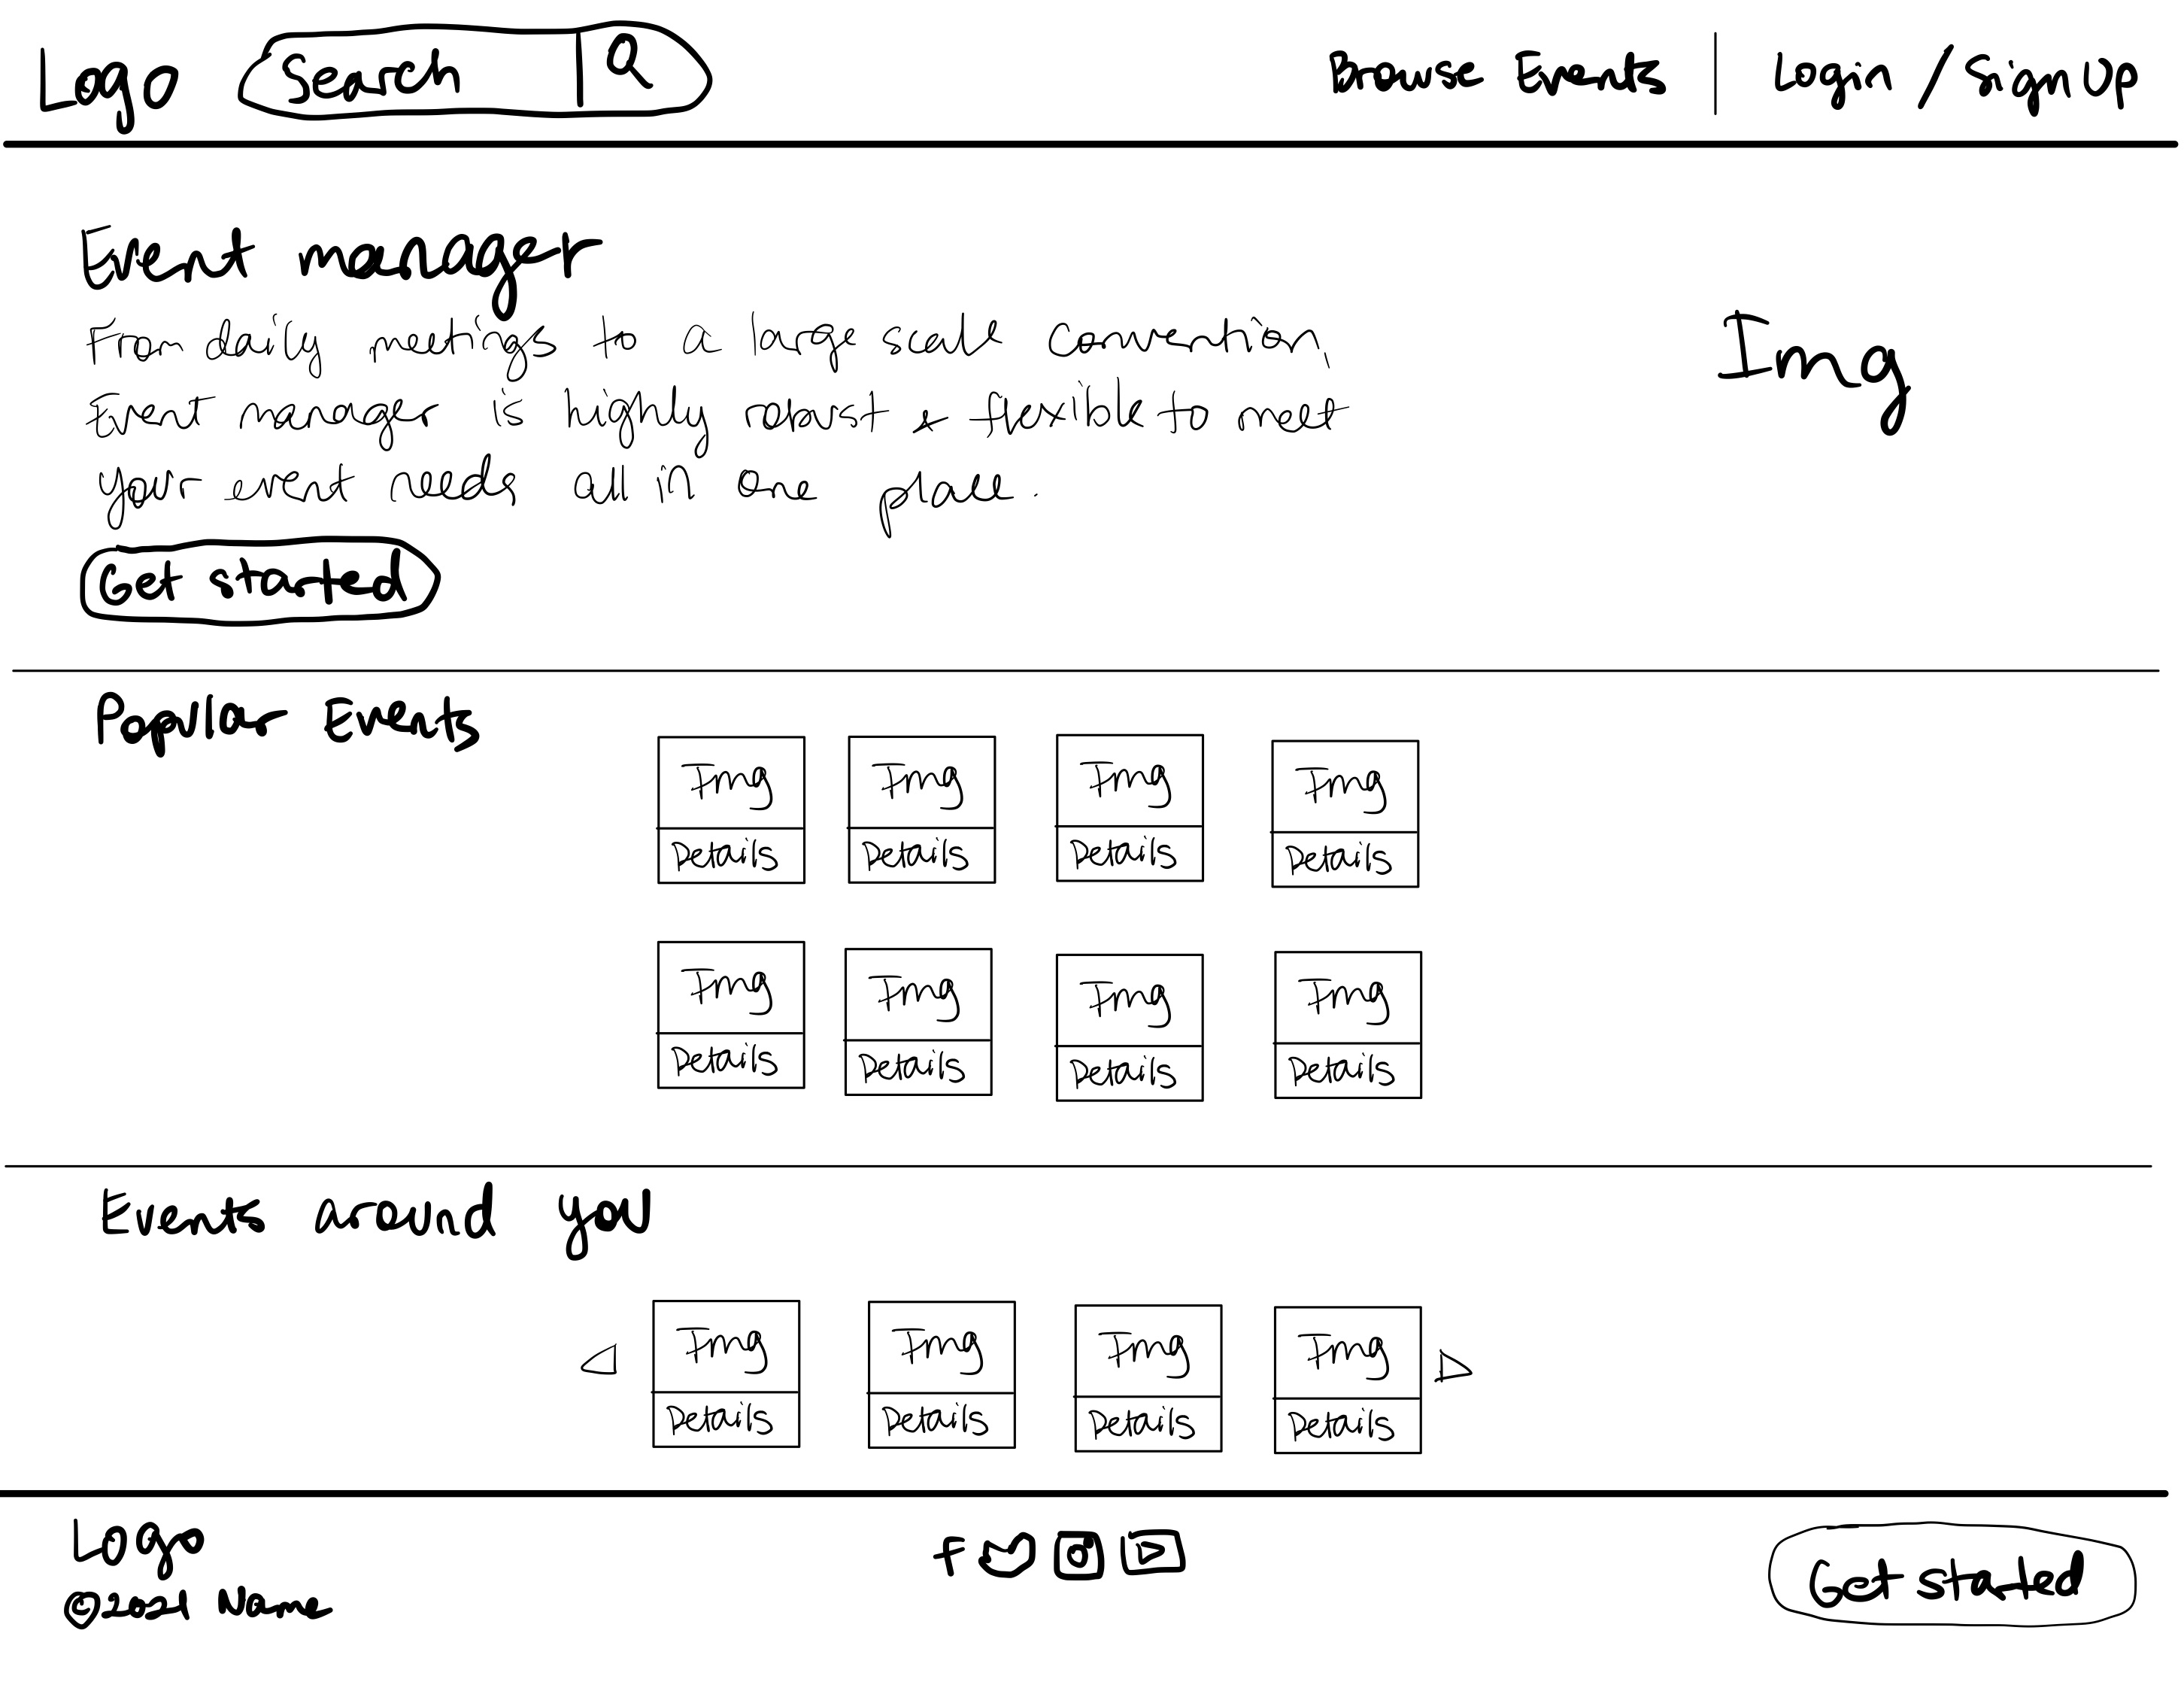 Logo Search Browse Events Login / Sign Up
Event manager
From daily meetings to a large scale convention,
Event manager is highly robust & flexible to meet
your event needs all in one place.
Img
Get started
Popular Events
Img Img Img Img
Details Details Details Details
Img Img Img Img
Details Details Details Details
Events around you
Img Img Img Img
Details Details Details Details
Logo
© Name
Get started